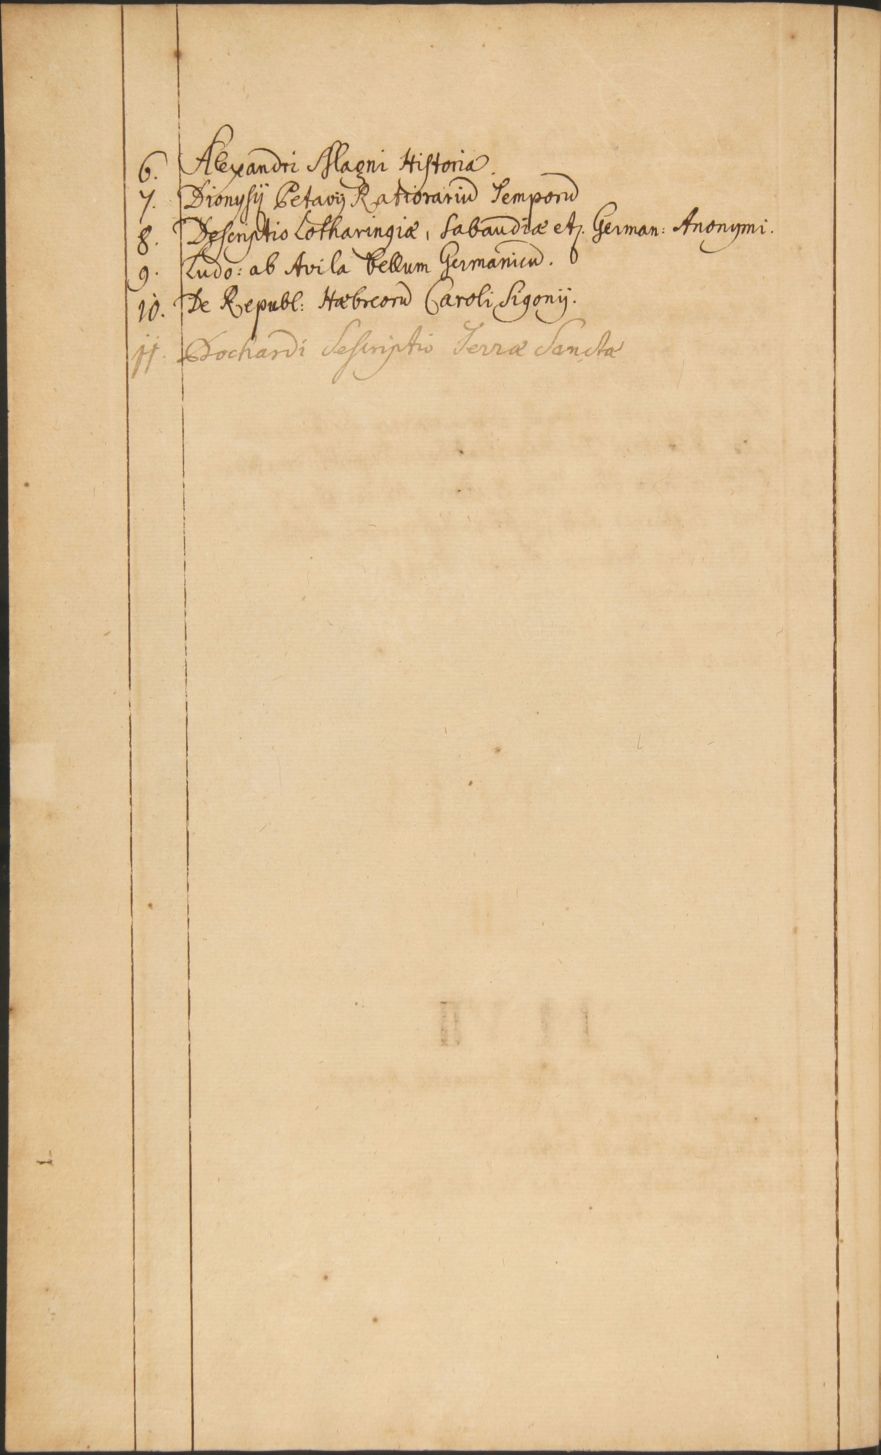 6. Alexandri Magni Historia.
7. Dionysij Petavij Rationariũ Temporũ
8. Descriptio Lotharingiæ, Sabaudiæ et p. German: Anonymi.
9. Ludo: ab Avila bellum Germanicũ.
10. De Republ: Hæbreorũ Caroli Sigonij.
11. Bochardi Descriptio Terræ Sanctæ